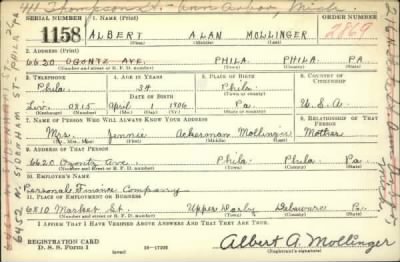 411 Thompson St. - Ann Arbor, Mich
SERIAL NUMBER 1. NAME (Print) ORDER NUMBER
1158 ALBERT ALAN MOLLINGER 2869
(First) (Middle) (Last)
2. ADDRESS (Print)
6620 OGONTZ AVE. PHILA. PHILA. PA.
(Number and street or R. F. D. number) (Town) (County) (State)
3. TELEPHONE 4. AGE IN YEARS 5. PLACE OF BIRTH 6. COUNTRY OF CITIZENSHIP
Phila. 34 Phila.
DATE OF BIRTH (Town or county)
Liv. 0815 April 1 1906 Pa. U.S.A.
(Exchange) (Number) (Mo.) (Day) (Yr.) (State or country)
7. NAME OF PERSON WHO WILL ALWAYS KNOW YOUR ADDRESS 8. RELATIONSHIP OF THAT PERSON
Mrs. Jennie Ackerman Mollinger Mother
(Mr., Mrs., Miss) (First) (Middle) (Last)
9. ADDRESS OF THAT PERSON
6620 Ogontz Ave. Phila. Phila. Pa.
(Number and street or R. F. D. number) (Town) (County) (State)
10. EMPLOYER'S NAME
Personal Finance Company
11. PLACE OF EMPLOYMENT OR BUSINESS
6810 Market St. Upper Darby Delaware Pa.
(Number and street or R. F. D. number) (Town) (County) (State)
I AFFIRM THAT I HAVE VERIFIED ABOVE ANSWERS AND THAT THEY ARE TRUE.
REGISTRATION CARD
D. S. S. Form 1 (over) 16-17105 Albert A. Mollinger
(Registrant's signature)
6452 N. SYDENHAM ST. PHILA